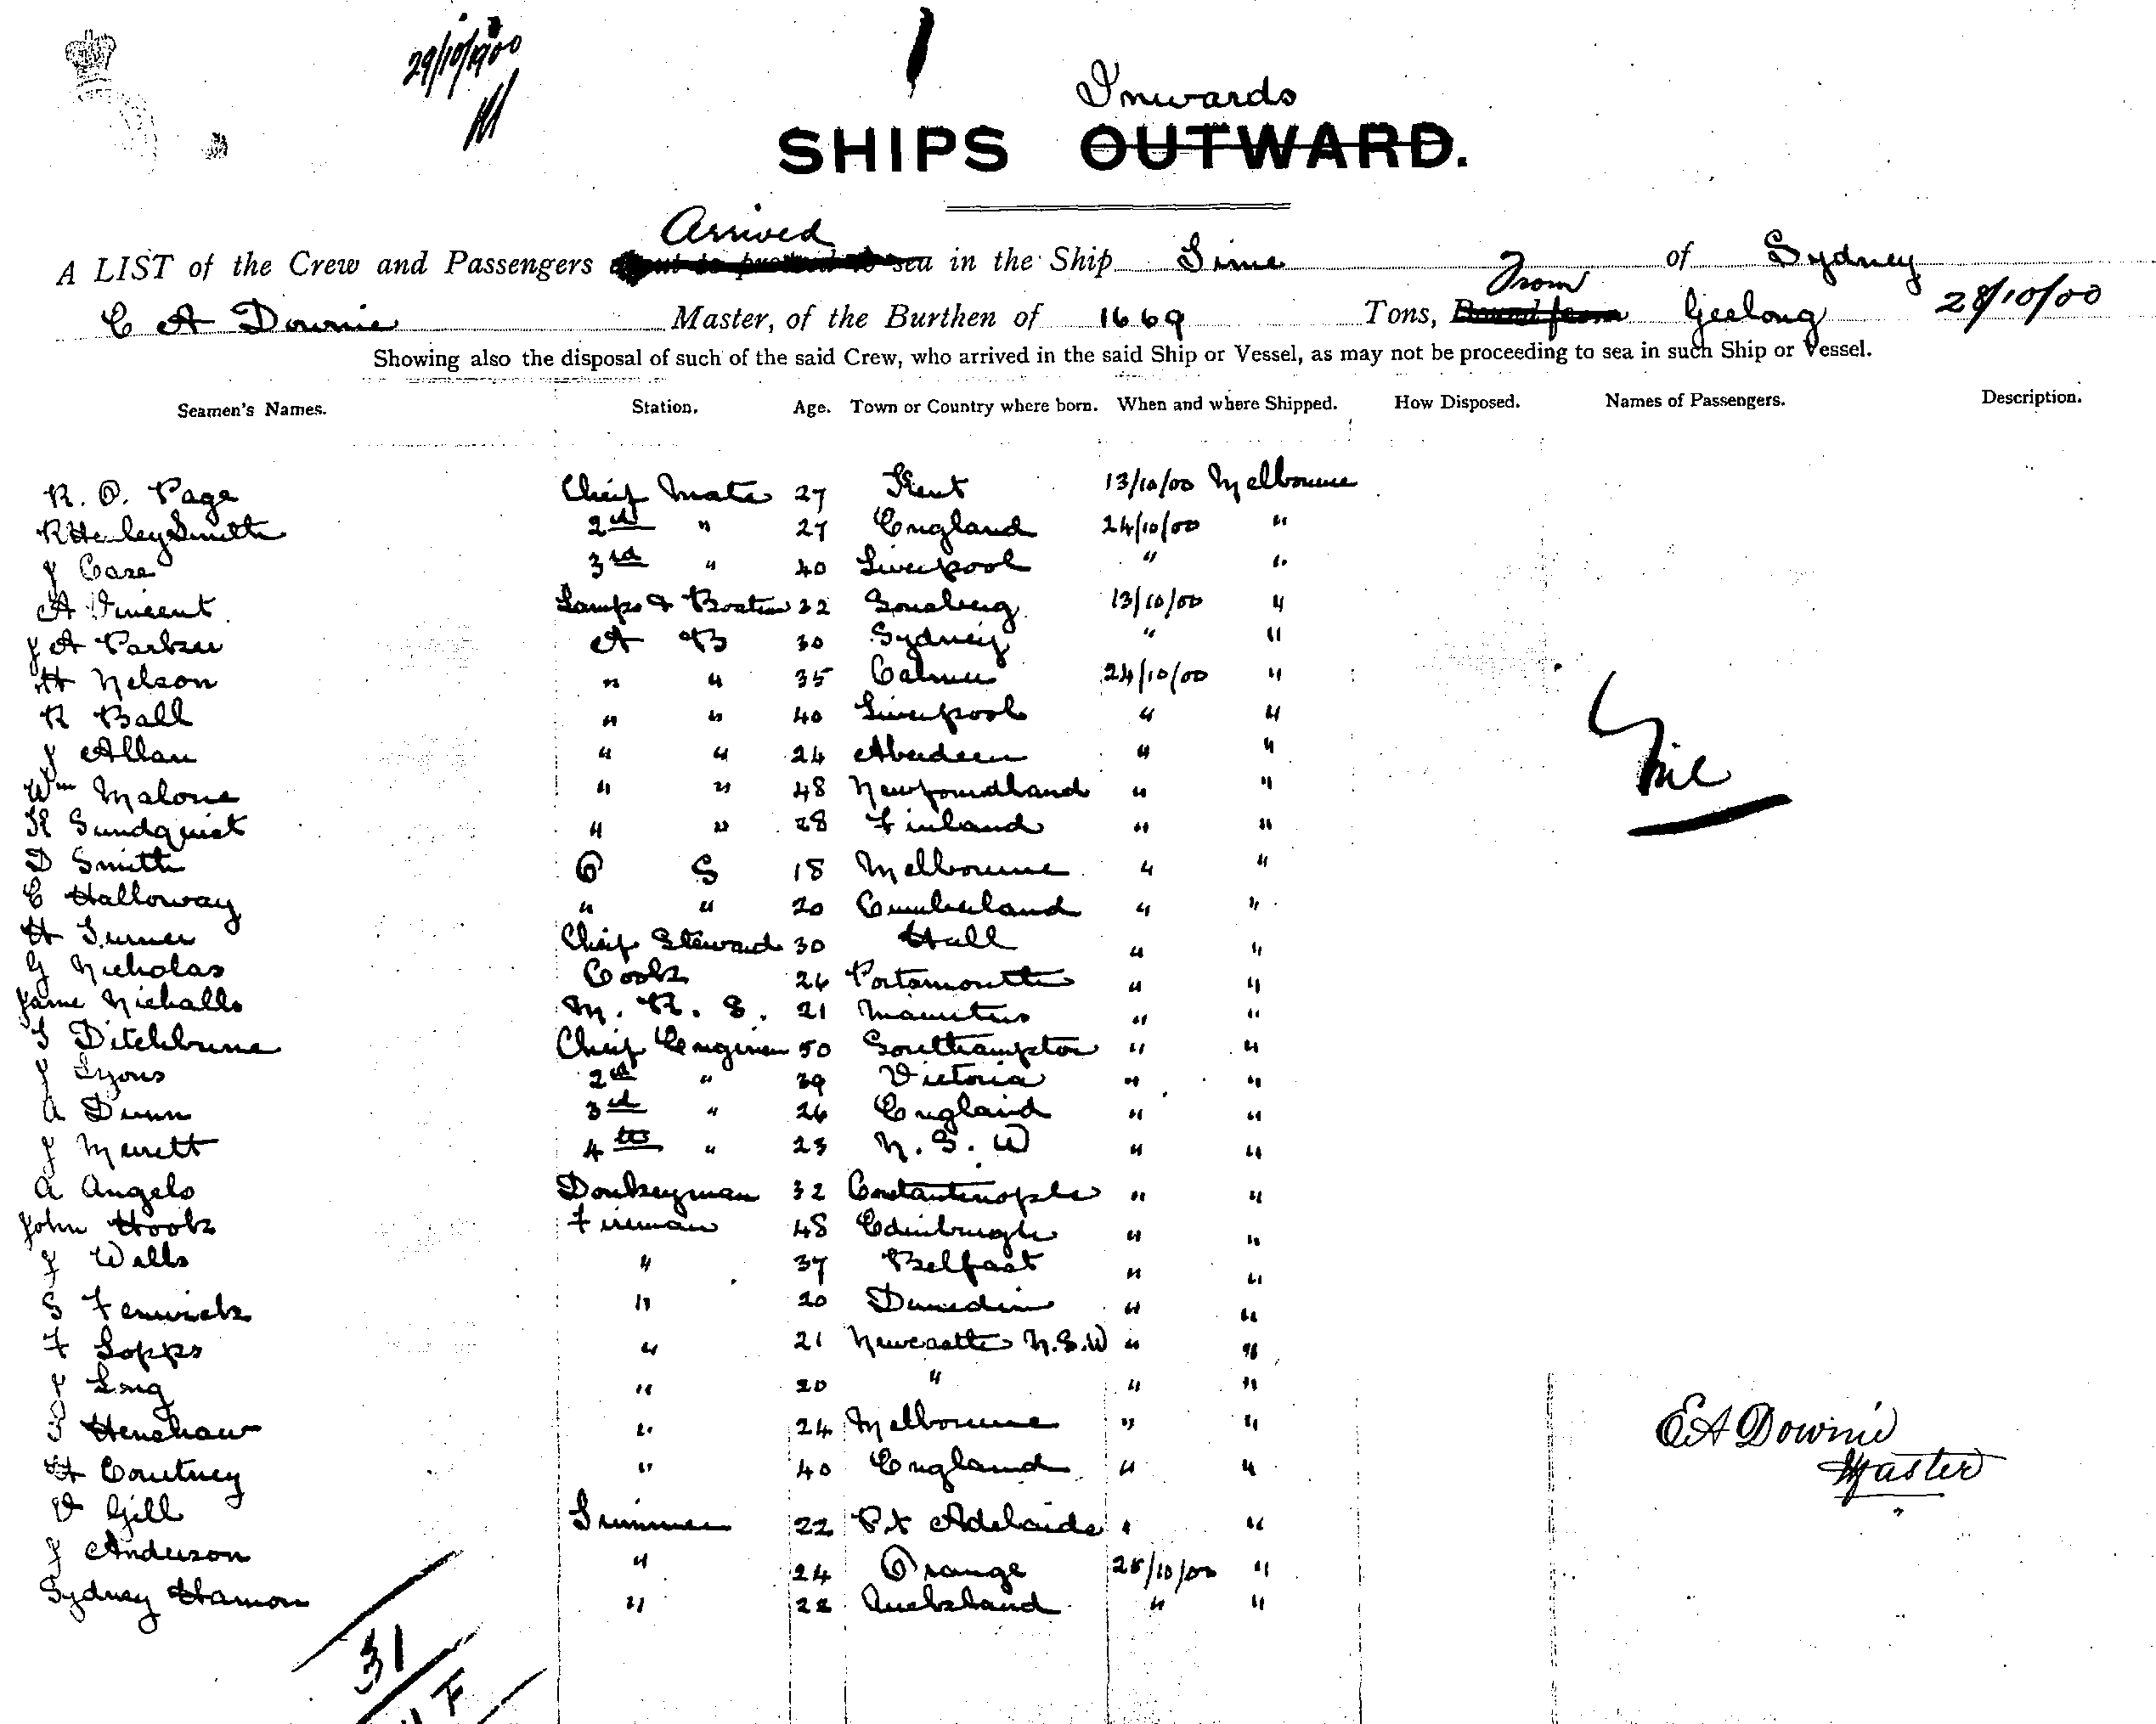 29/10/1900
Inwards
SHIPS OUTWARD.
Arrived
A LIST of the Crew and Passengers about to proceed to sea in the Ship Time of Sydney
From
C A Downie Master, of the Burthen of 1669 Tons, Bound from Geelong 28/10/00
Showing also the disposal of such of the said Crew, who arrived in the said Ship or Vessel, as may not be proceeding to sea in such Ship or Vessel.
Seamen's Names. Station. Age. Town or Country where born. When and where Shipped. How Disposed. Names of Passengers. Description.
R. O. Page Cheif Mate 27 Kent 13/10/00 Melbourne
R Henley Smith 2nd " 27 England 24/10/00 "
J Case 3rd " 40 Liverpool " "
A Vincent Lamps & Boatsn 32 13/10/00 "
J A Parker A B 30 Sydney " "
H Nelson " " 35 Calmer 24/10/00 "
R Ball " " 40 Liverpool " "
J Allan " " 24 Aberdeen " "
Nil
Wm Malone " " 48 Newfoundland " "
K Sundquist " " 28 Finland " "
D Smith O S 18 Melbourne " "
C Halloway " " 20 Cumberland " "
H Turner Cheif Steward 30 Hull " "
G Nicholas Cook 26 Portsmouth " "
Jame Nichalls M. R. S. 21 Mauritus " "
T Ditchburne Cheif Engineer 50 Southampton " "
J Lyons 2nd " 39 Victoria " "
A Dunn 3rd " 26 England " "
J Merrett 4th " 23 N. S. W " "
A Angelo Donkeyman 32 Constantinople " "
John Hook Fireman 48 Edinburgh " "
J Wells " 37 Belfast " "
S Fenwick " 20 Dunedin " "
F Topps " 21 Newcastle N.S.W " "
J Long " 20 " " "
T Henshaw " 24 Melbourne " "
H Coutney " 40 England " "
V Gill Trimmer 22 Pt Adelaide " "
J Anderson " 24 Orange 25/10/00 "
Sydney Hamon " 22 Aucksland " "
EA Downie
Master
31